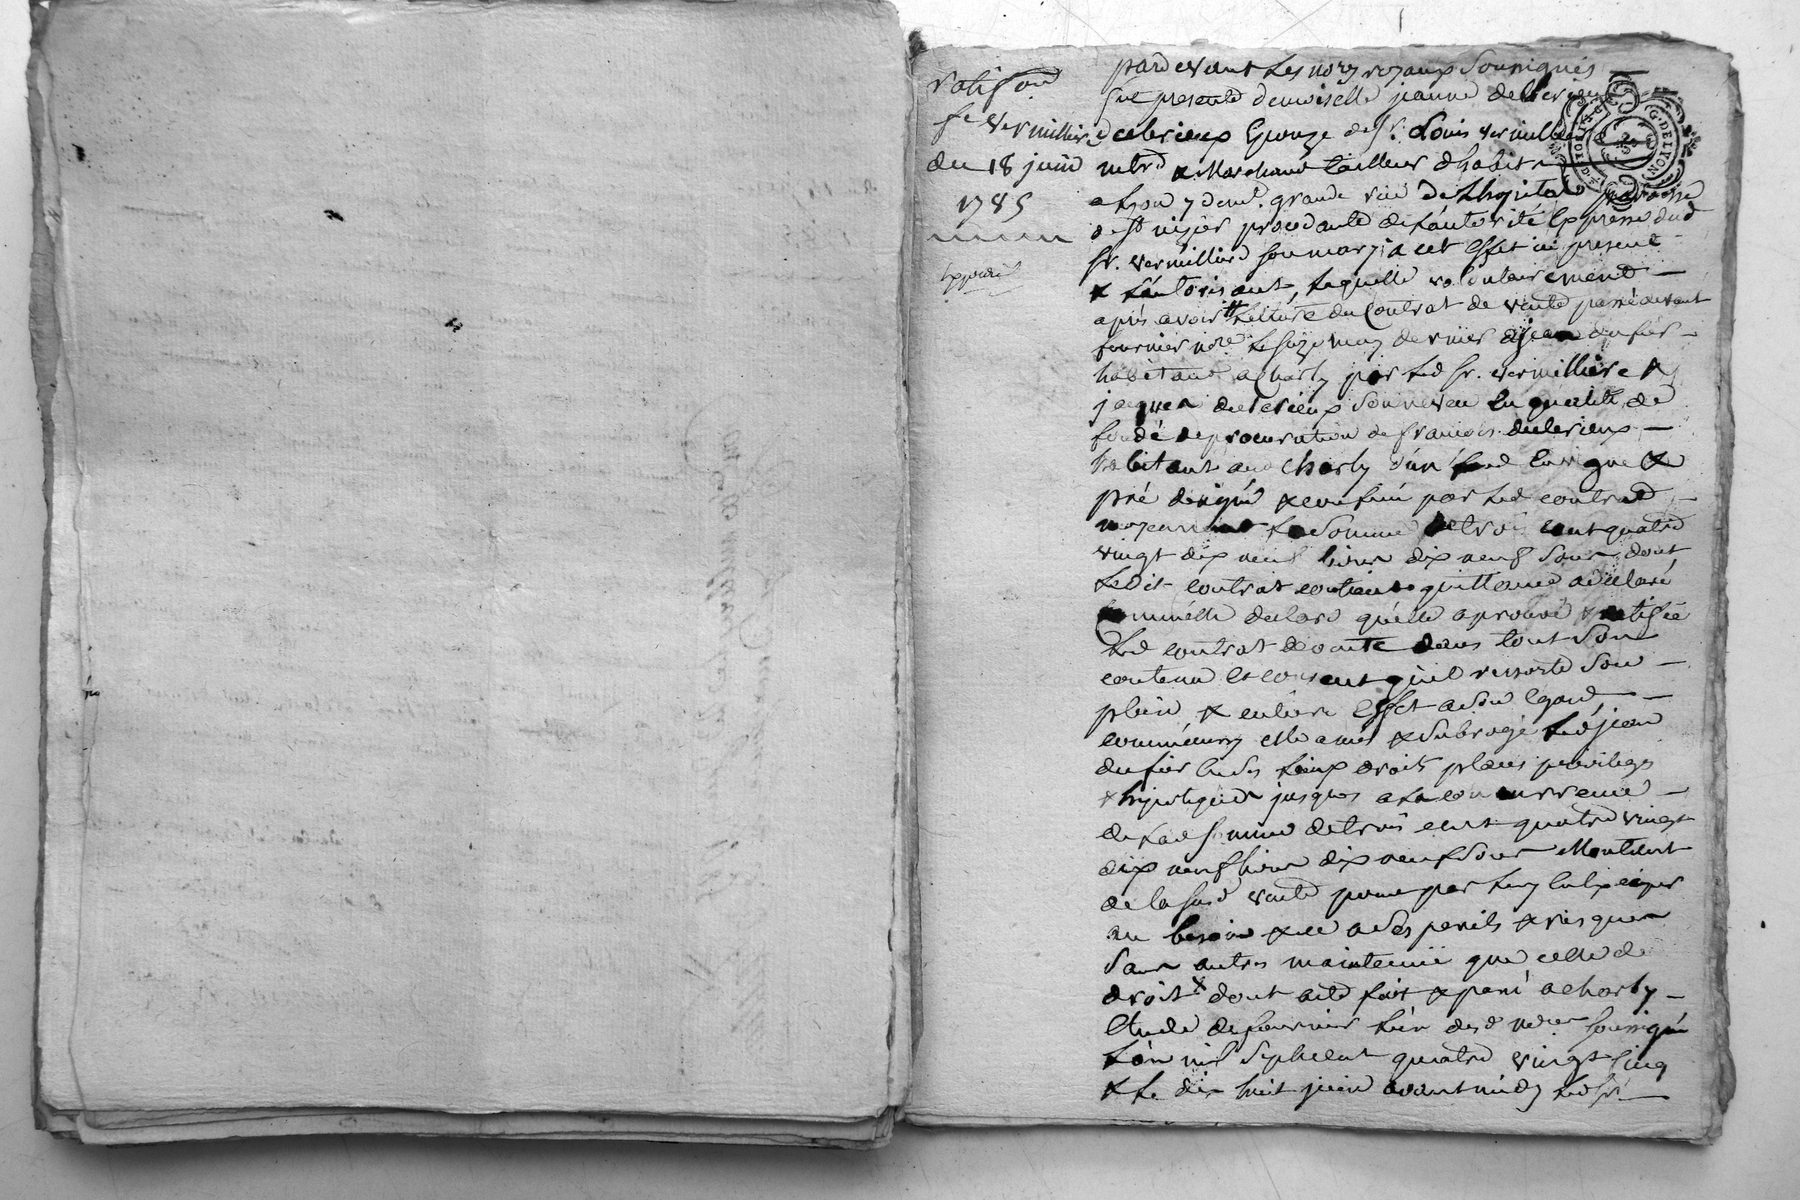 ratif.on
fe vermilliere
du 18 juin
1785
Expedié
pardevant les nores royaux soussignés
fut presente demoiselle jeanne delerieux
delerieux Epouze de Sr. Louis vermilliere
mtre & Marchand tailleur d'habits
a Lyon y demt. grande rue de L'hopital paroisse
de st nizier procedante de l'autorité Expresse dud
Sr. vermilliere son mary a cet effet ici present
& L'autorisant, Laquelle volontairement
après avoir # Lecture du Contrat de vente passé devant
fournier nore Le seize may dernier a jean dufier
habitant a Charly par Led Sr. vermilliere &
jacques delerieux son neveu En qualité de
fondé de procuration de francois delerieux
habitant aud Charly d'un fond En vigne &
pré designé & confiné par Led contrat
moyennant La Somme de trois cent quatre
vingt dix neuf livres dix neuf sous dont
Ledit contrat contient quittance a declaré
comme elle declare qu'elle aprouve & ratifie
Led contrat de vente dans tout Son
contenu et consent qu'il ressorte Son
plein & entier Effet a son Egard
comme aussy elle a mis & subrogé Led jean
dufier En ses Lieux droits places privileges
& hipoteques jusques a La concurrence
de Lad Somme de trois cent quatre vingt
dix neuf livres dix neuf sous Montant
de la susd vente pour par Luy s'en
au besoin & ce a ses perils & risques
Sans autres maintenue que celle de
droit x dont acte fait & passé a charly
Etude de fournier L'un desd nores soussigné
L'an mil Sept cent quatre vingt Cinq
& Le dix huit juin avant midy Led Sr.